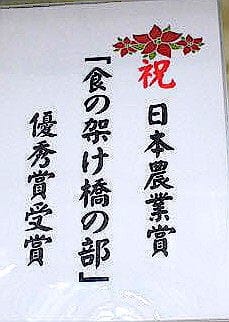 祝
日本農業賞
『食の架け橋の部』
優秀賞受賞